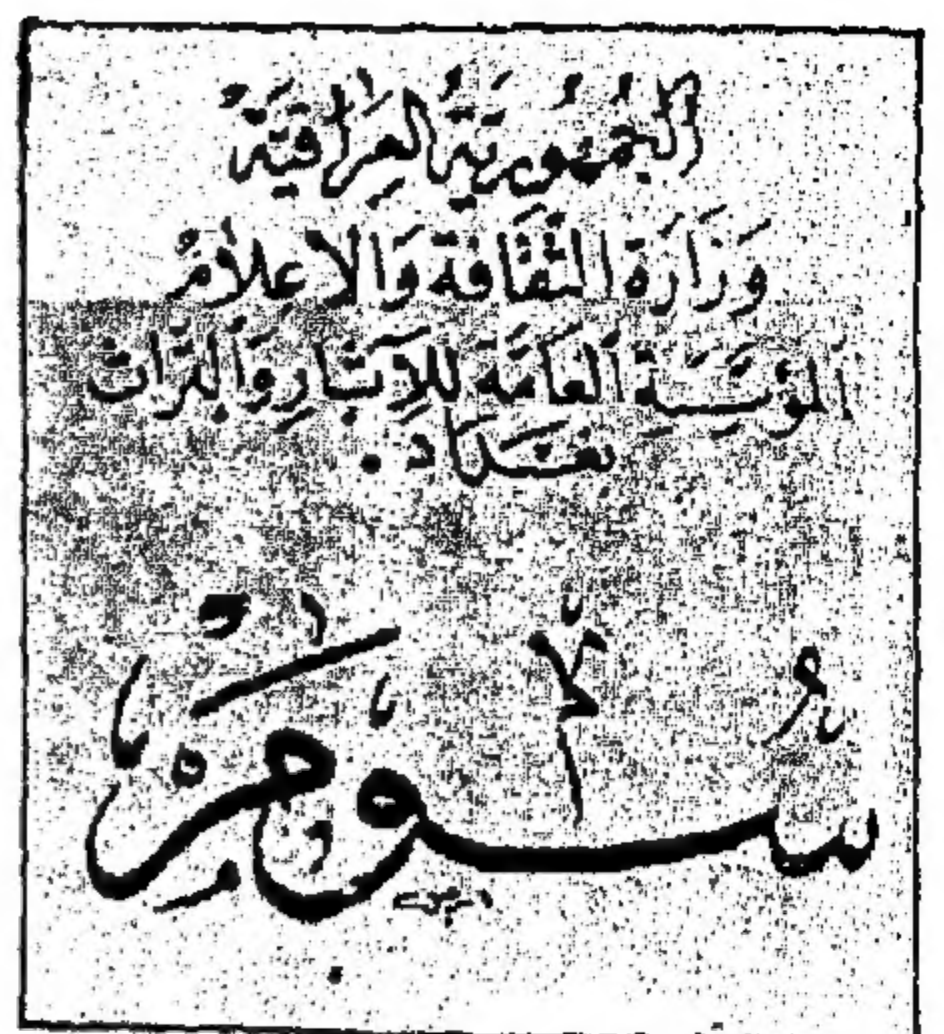 الجُمهُوريَةُ العِرَاقيَة
وَزَارَة الثقَافة وَالاعلامُ
المؤسَسَة العَامَة لِلآثارِ وَالتراث
بغداد .
سُومَر